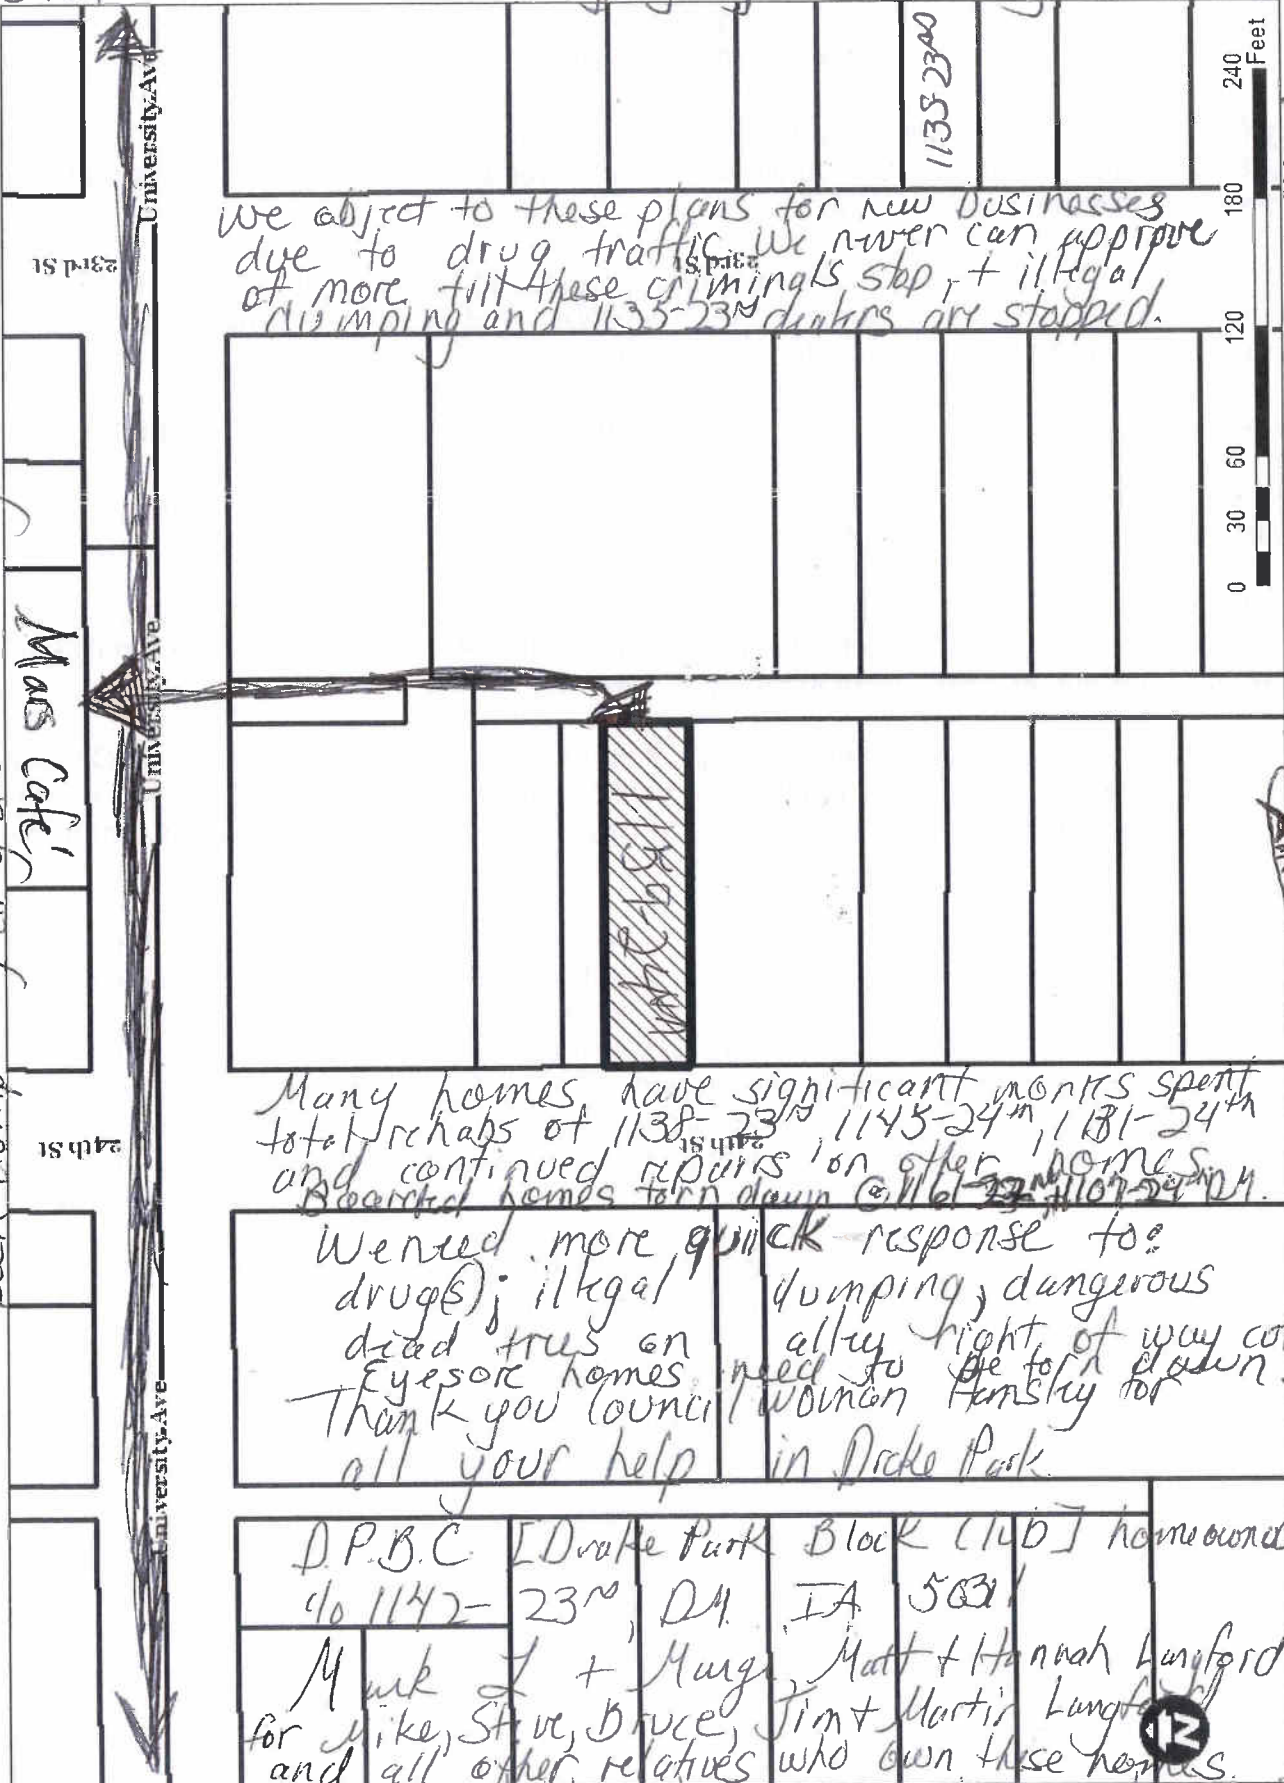 1135-23rd
240
Feet
180
120
60
30
0
University Ave
23rd St
We object to these plans for new businesses
due to drug traffic. We never can approve
23rd St
of more till these criminals stop, + illegal
dumping and 1135-23rd dealers are stopped.
Mars Cafe'
University Ave
University Ave
1159-24th
24th St
Many homes have significant monies spent
total rehabs of 1138-23rd, 1145-24th, 1181-24th
24th St
and continued repairs on other homes.
Boarded homes torn down @ 1161- 1107-24th DM.
We need more quick response to:
drug(s); illegal dumping, dangerous
dead trees on alley right of way
Eyesore homes need to be torn down.
Thank you Council woman Hensley for
all your help in Drake Park.
University Ave
D.P.B.C. [Drake Park Block Club]
c/o 1142- 23rd, DM. IA 50311
Mark L + Marge, Matt + Hannah Langford
for Mike, Steve, Bruce, Jim + Martin Langford
and all other relatives who own these homes.
N